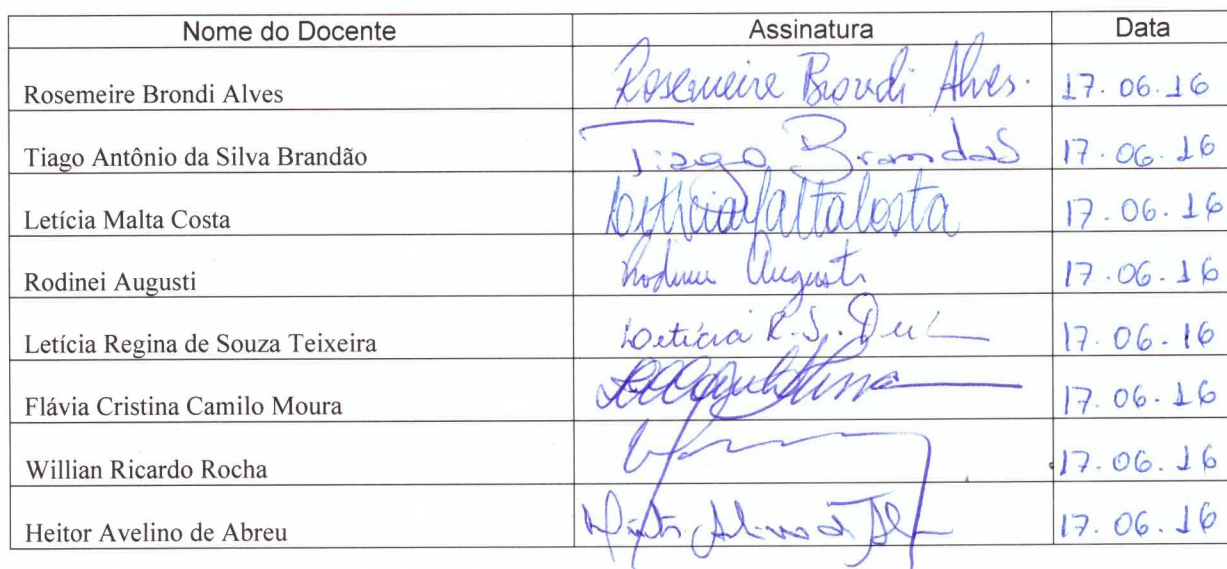 Nome do Docente Assinatura Data
Rosemeire Brondi Alves Rosemeire Brondi Alves. 17.06.16
Tiago Antônio da Silva Brandão Tiago Brandão 17.06.16
Letícia Malta Costa Letícia Malta Costa 17.06.16
Rodinei Augusti Rodinei Augusti 17.06.16
Letícia Regina de Souza Teixeira Letícia R. S. 17.06.16
Flávia Cristina Camilo Moura 17.06.16
Willian Ricardo Rocha 17.06.16
Heitor Avelino de Abreu 17.06.16